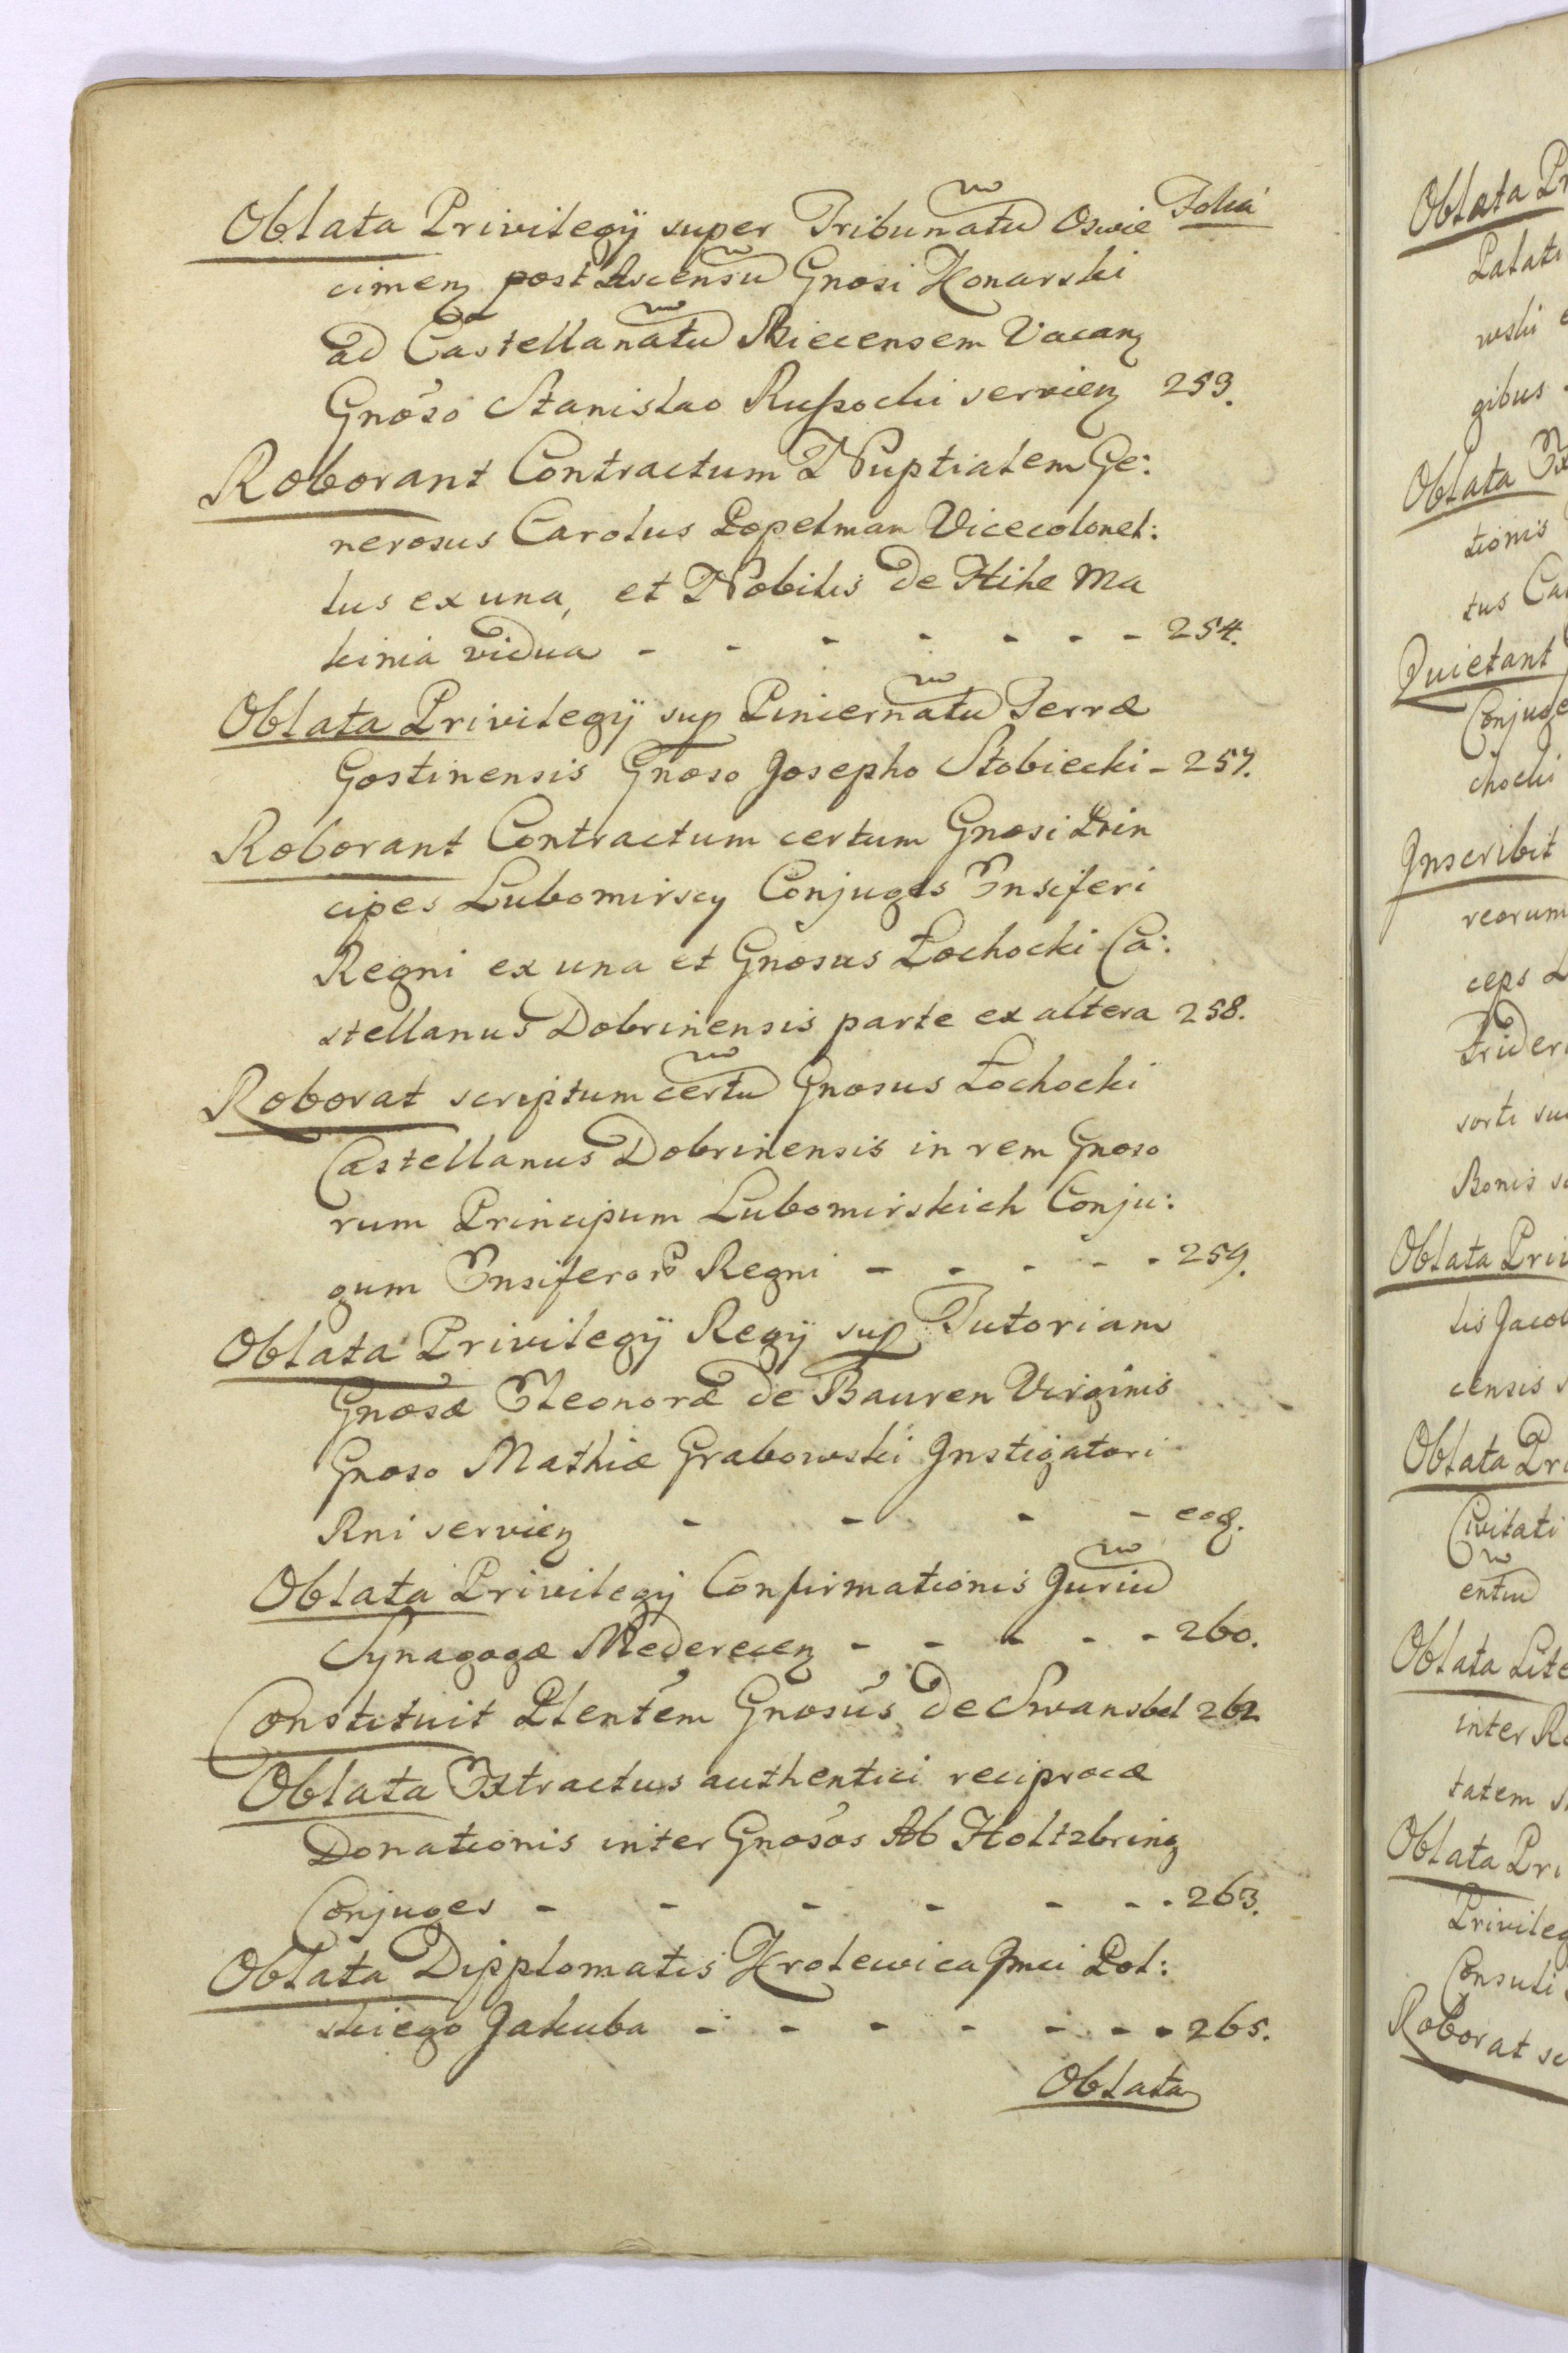 Folia
Oblata Privilegÿ super Tribunatũ Oswie
cimeng post Ascensũ Gnosi Konarski
ad Castellanatũ Biecensem Vacanz
Gnoso Stanislao Russocki servienz 253.
Roborant Contractum Nuptialem Ge:
nerosus Carolus Popelman Vicecolonel:
lus ex una, et Nobilis de Hihe Ma
kinia vidua - - - - - - - 254.
Oblata Privilegÿ sup Pincernatũ Terræ
Gostinensis Gnoso Josepho Stobiecki - 257.
Roborant Contractum certum Gnosi Prin
cipes Lubomirscy Conjuges Ensiferi
Regni ex una et Gnosus Łochocki Ca:
stellanus Dobrinensis parte ex altera 258.
Roborat scriptum certũ Gnosus Łochocki
Castellanus Dobrinensis in rem Gnoso
rum Principum Lubomirskich Conju:
gum Ensiferor Regni - - - - - 259.
Oblata Privilegÿ Regÿ sup Tutoriam
Gnosæ Eleonoræ de Bauren Virginis
Gnoso Mathiæ Grabowski Instigatori
Rni servienz - - - - eod.
Oblata Privilegÿ Confirmationis Juriũ
Synagogæ Mederecenz - - - - - 260.
Constituit Plentem Gnosus de Swansbel 262
Oblata Extractus authentici reciprocæ
Donationis inter Gnosos Ab Holtzbring
Conjuges - - - - - - - 263.
Oblata Dipplomatis Krolewica Jmci Pol:
skiego Jakuba - - - - - - - 265.
Oblata
Oblata Pr
Palati
wski
gibus
Oblata Ex
tionis
tus Ca
Quietant
Conjuge
chocki
Inscribit
reorum
ceps L
Frideri
sorti su
Bonis s
Oblata Privi
lis Jacob
censis s
Oblata Pri
Civitati
entiũ
Oblata Lite
inter R
tatem s
Oblata Pri
Privileg
Consuli
Roborat sc